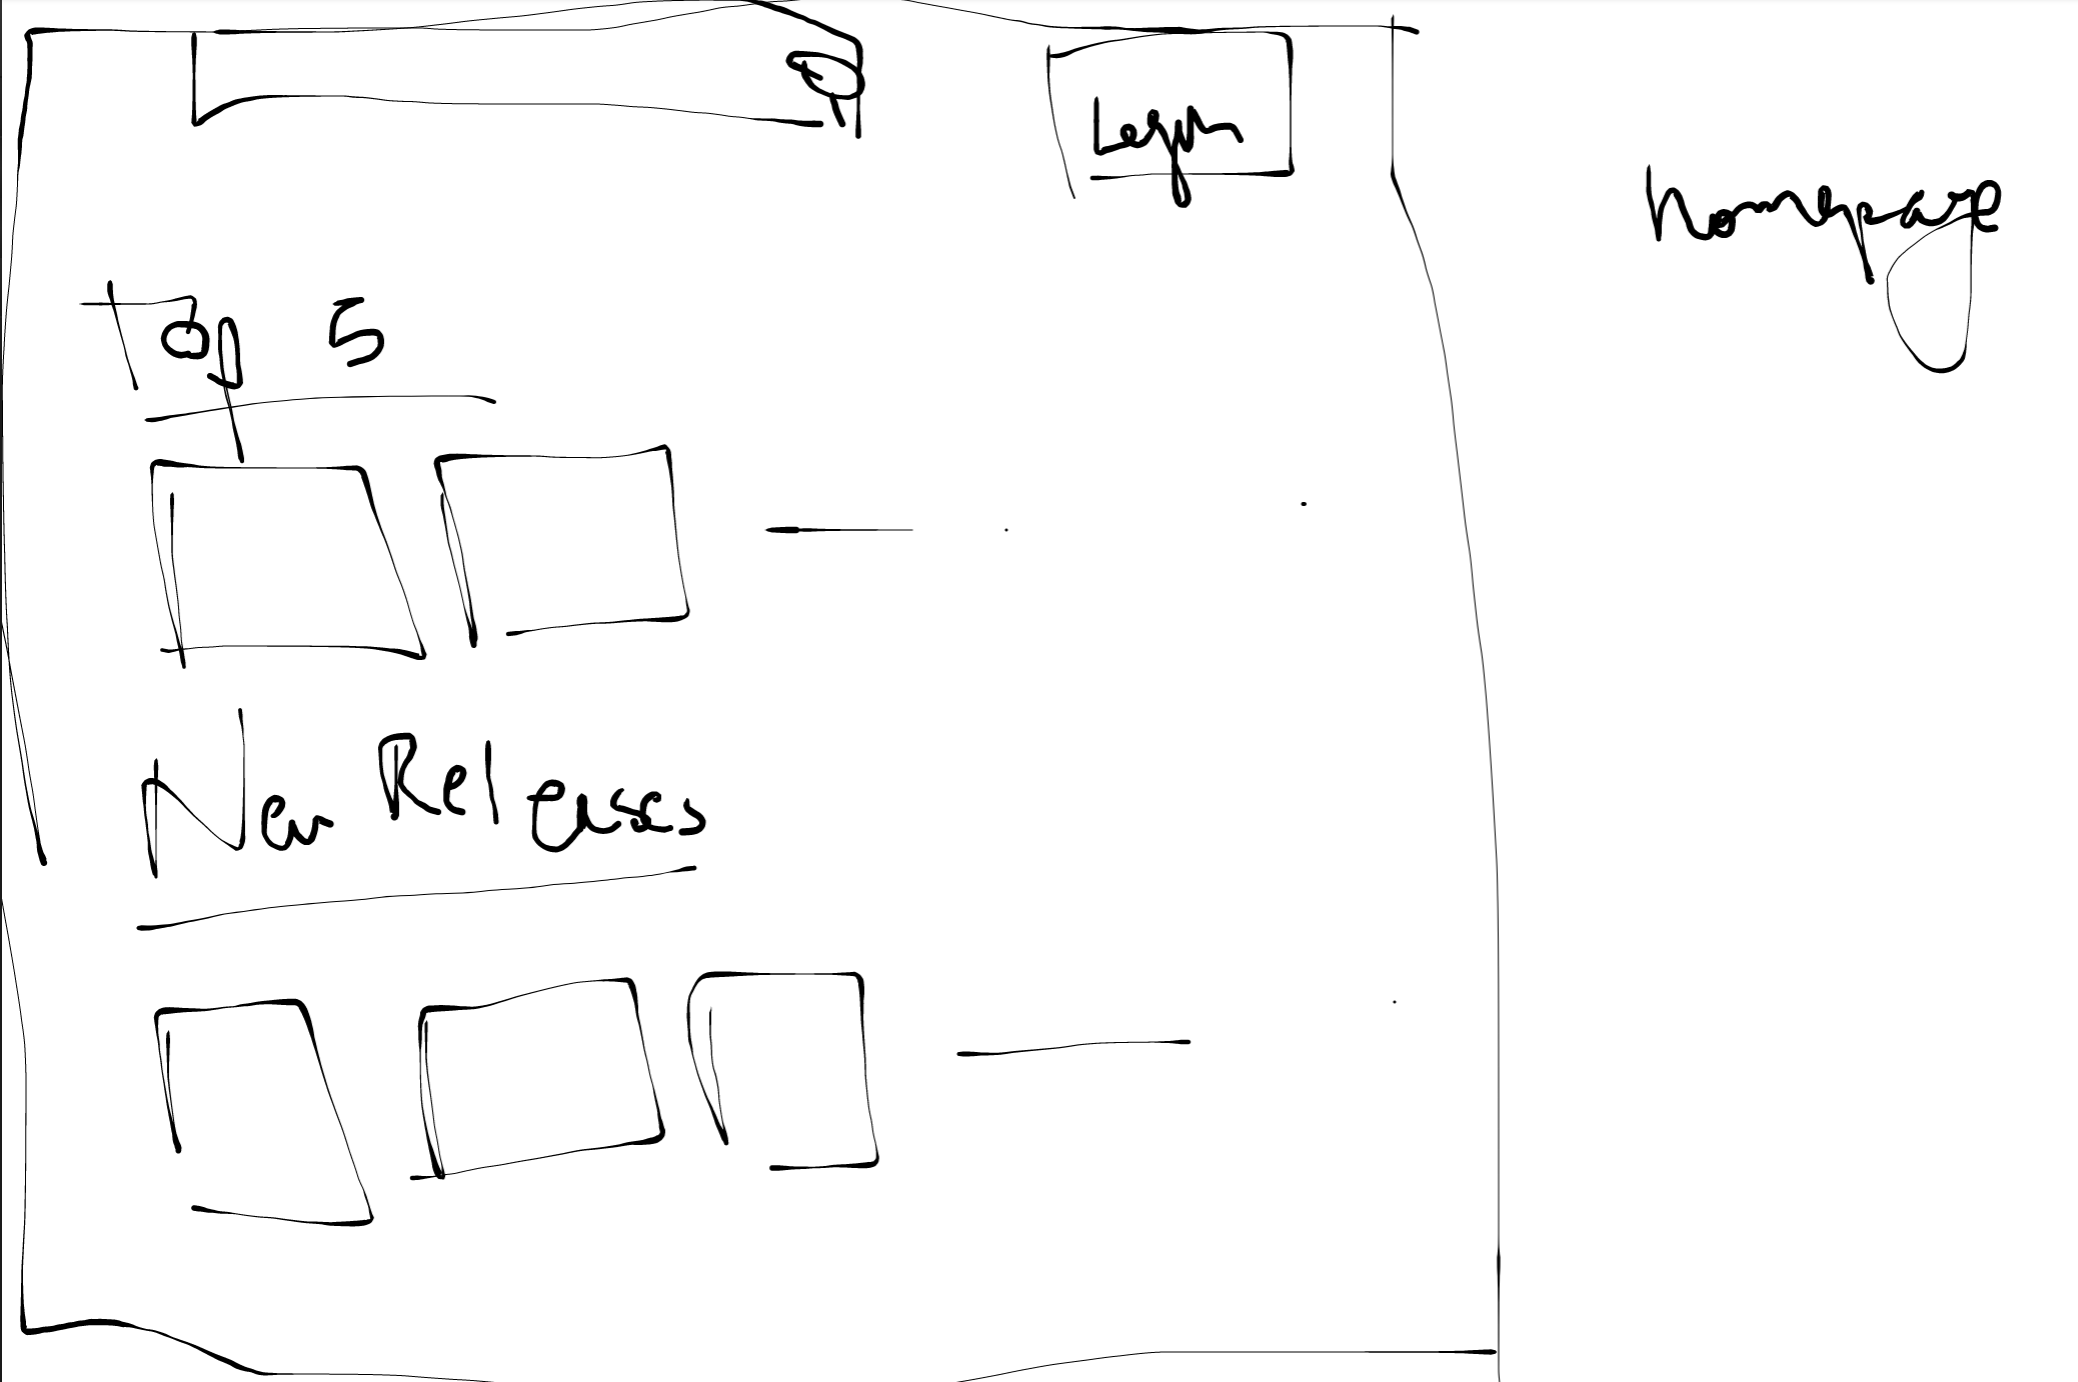 Login
homepage
Top 5
New Releases